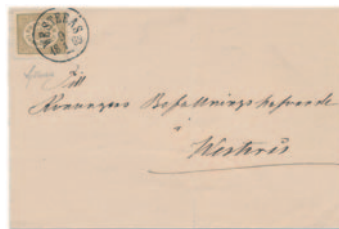 WESTERÅS
Till
Konungens Befallningshafvande
i
Westerås